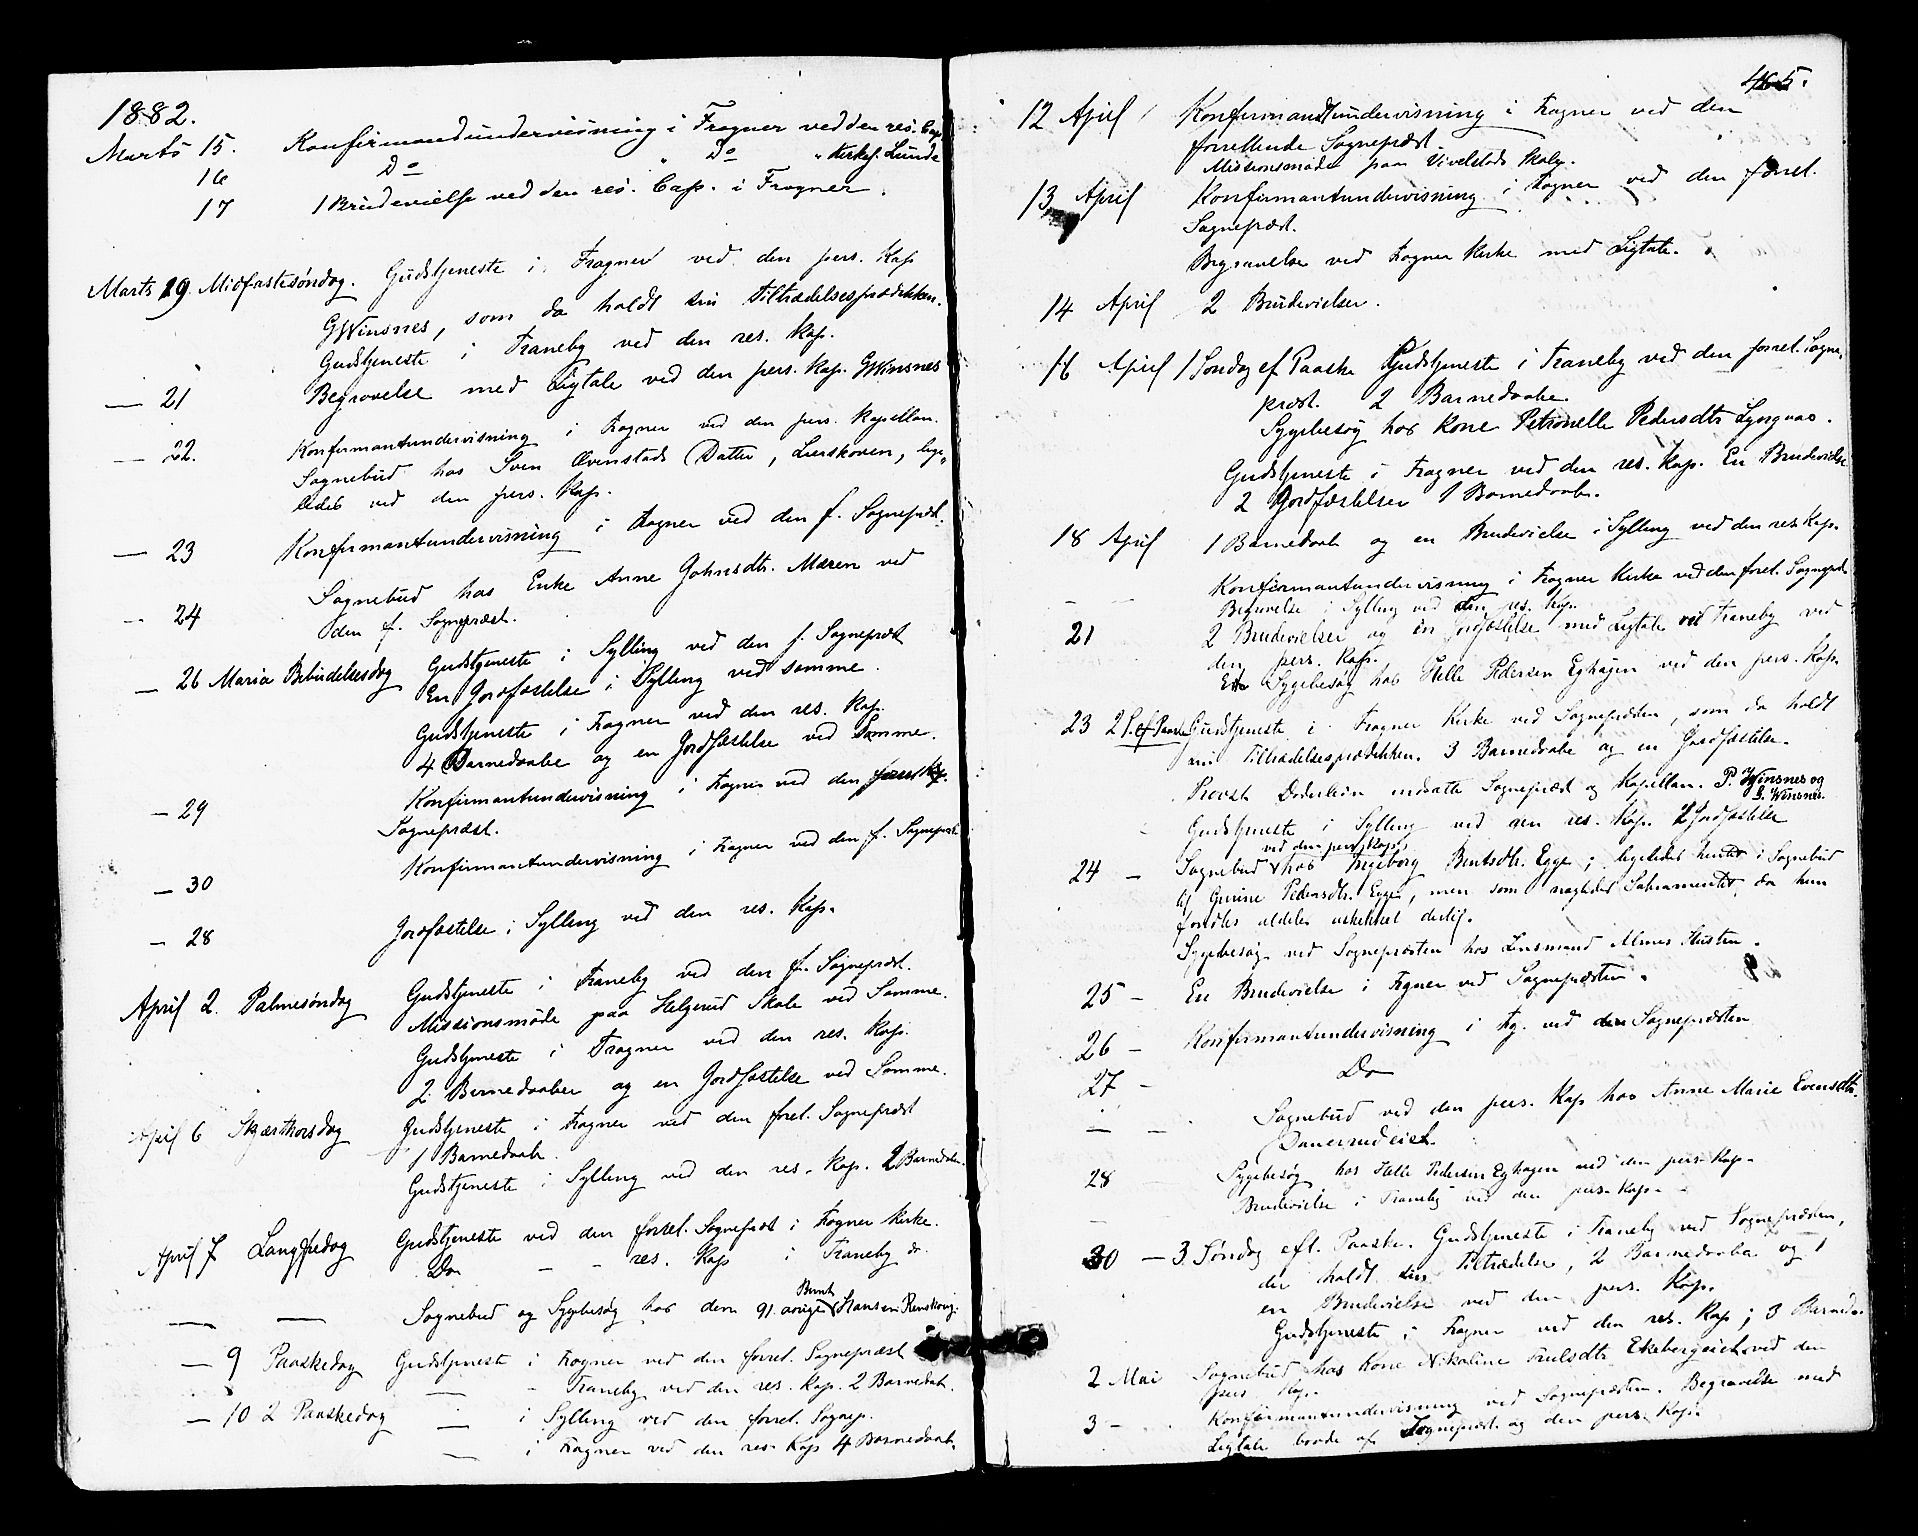 1882.
Marts 15. Konfirmandundervisning i Fragner ved den res. Cap.
16 Do " Do " Kirkes. Lunde
17 1 Brudevielse ved den res. Cap. i Fragner.
Marts 19. Midfastesøndag. Gudstjeneste i Fragner ved den pers. Kap
GWinsnes, som da holdt sin Tiltrædelsesprædiken.
Gudstjeneste i Traneby ved den res. Kap.
— 21 Begravelse med Ligtale ved den pers. Kap. GWinsnes
— 22. Konfirmantundervisning i Fragner ved den pers. Kapellan.
Sognebud hos Sven Ovenstads Datter, Lierskoven, lige-
ledes ved den pers. Kap.
— 23 Konfirmantundervisning i Fragner ved den f. Sognepræst.
— 24 Sognebud hos Enke Anne Johnsdtr. Mæren ved
den f. Sognepræst.
— 26 Maria Bebudelsesdag Gudstjeneste i Sylling ved den f. Sognepræst
En Jordfæstelse i Sylling ved samme.
Gudstjeneste i Fragner ved den res. Kap.
4 Barnedaabe og en Jordfæstelse ved Samme.
— 29 Konfirmantundervisning i Fragner ved den
Sognepræst.
— 30 Konfirmantundervisning i Fragner ved den f. Sognepræst
— 28 Jordfæstelse i Sylling ved den res. Kap.
April 2. Palmesøndag Gudstjeneste i Traneby ved den f. Sognepræst.
Missionsmøde paa Helgerud Skole ved Samme.
Gudstjeneste i Fragner ved den res. Kap.
2 Barnedaaber og en Jordfæstelse ved Samme.
April 6 Skjærthorsdag Gudstjeneste i Fragner ved den forret. Sognepræst
1 Barnedaab.
Gudstjeneste i Sylling ved den res. Kap. 2 Barnedaabe.
April 7 Langfredag Gudstjeneste ved den forret. Sognepræst i Fragner Kirke.
Do — — res. Kap i Traneby do.
— — Sognebud og Sygebesøg hos den 91 aarige Bent Hansen Renskoug.
— 9 Paaskedag Gudstjeneste i Fragner ved den forret. Sognepræst
— - Traneby ved den res. Kap. 2 Barnedaab.
— 10 2 Paaskedag — i Sylling ved den forret. Sognep.
— i Fragner ved den res. Kap 4 Barnedaab.
465.
12 April Konfirmantundervisning i Fragner ved den
forrettende Sognepræst.
Missionsmøde paa Vivelstads Skole.
13 April Konfirmantundervisning i Fragner ved den forret.
Sognepræst.
Begravelse ved Fragner Kirke med Ligtale.
14 April 2 Brudevielser.
16 April 1 Søndag ef Paaske Gudstjeneste i Traneby ved den forret. Sogne-
præst. 2 Barnedaabe
Sygebesøg hos Kone Petronelle Pedersdtr
Gudstjeneste i Fragner ved den res. Kap. En Brudevielse
2 Jordfæstelser 1 Barnedaab.
18 April 1 Barnedaab og en Brudevielse i Sylling ved den res Kap.
— — Konfirmantundervisning i Fragner Kirke ved den forret. Sognepræst
Begravelse i Sylling ved den res. Kap.
21 2 Brudevielser og en Jordfæstelse med Ligtale ved Traneby ved
den pers. Kap.
Sygebesøg hos Helle Pedersen Eghagen ved den pers. Kap.
23 2 S. ef Paaske Gudstjeneste i Fragner Kirke ved Sognepræsten, som da holdt
sin Tiltrædelsesprædikken. 3 Barnedaabe og en Jordfæstelse.
Provst indsatte Sognepræst og Kapellan. P. Winsnes og
G. Winsnes.
Gudstjeneste i Sylling ved den res. Kap. 2 Jordfæstelse
24 — Sognebud ved den pers. Kap. hos Ingeborg Berntsdtr. Egge; ligeledes hentet i Sognebud
af Gunine Pedersdtr. Egge, men som nægtedes Sakramentet, da hun
fandtes aldeles uskikket dertil.
Sygebesøg ved Sognepræsten hos Lensmand
25 — En Brudevielse i Fragner ved Sognepræsten.
26 — Konfirmantundervisning i Frg. ved den Sognepræsten
27 — Do
— — Sognebud ved den pers. Kap hos Anne Marie Evensdtr.
28 Sygebesøg hos Helle Pedersen Eghagen ved den pers. Kap.
Brudevielse i Traneby ved den pers. Kap.
30 — 3. Søndag eft. Paaske. Gudstjeneste i Traneby ved Sognepræsten,
der holdt sin Tiltrædelse, 2 Barnedaaba og 1
en Brudevielse ved den pers. Kap.
Gudstjeneste i Fragner ved den res. Kap; 3 Barneda-
2 Mai Sognebud hos Kone Nikoline Trulsdtr Ekebergeiet ved den
pers Kap.
3 — Konfirmantundervisning ved Sognepræsten. Begravelse med
Ligtale baade af Sognepræst og den pers. Kap.